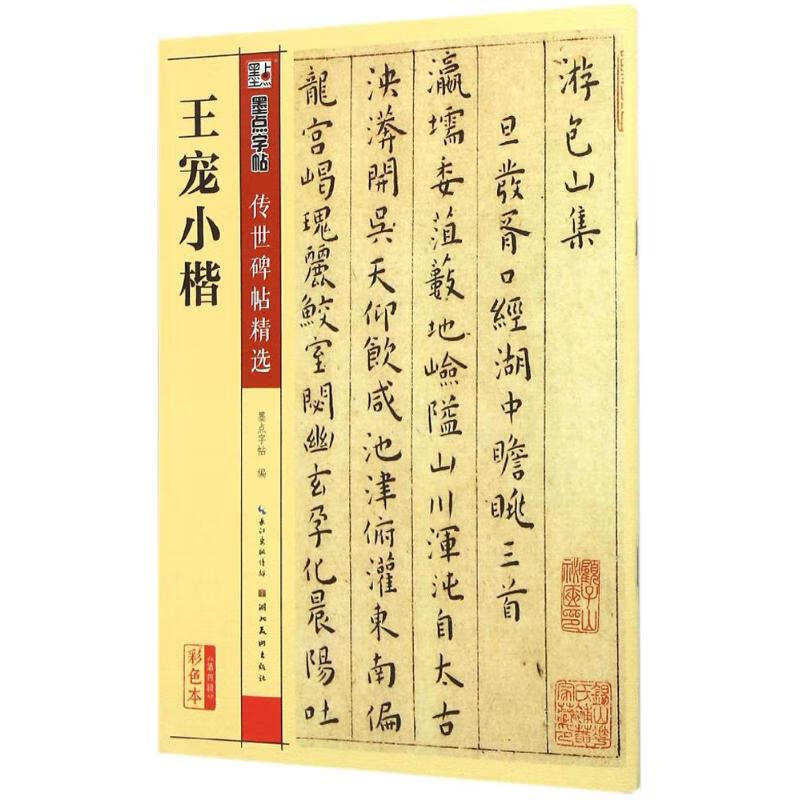 王宠小楷
墨点
墨点字帖
传世碑帖精选
墨点字帖 编
长江出版传媒
湖北美术出版社
彩色本
游包山集
旦發胥口經湖中瞻眺三首
瀛壖委菹藪地嶮隘山川渾沌自太古
泱漭開吳天仰飲咸池津俯灌東南偏
龍宮嵑瑰麗鮫室閟幽玄孕化晨陽吐